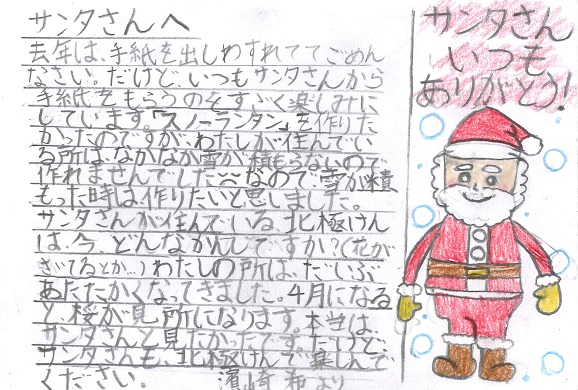 サンタさんへ
去年は、手紙を出しわすれててごめん
なさい。だけど、いつもサンタさんから
手紙をもらうのをすごく楽しみに
しています。「スノーランタン」を作りた
かったのですが、わたしが住んでい
る所は、なかなか雪が積もらないので
作れませんでした。なので、雪が積
もった時は、作りたいと思しました。
サンタさんが住んでいる、北極けん
は、今、どんなかんじですか?(花が
さいてるとか...)わたしの所は、だいぶ
あたたかくなってきました。4月になる
と、桜が見所になります。本当は、
サンタさんと見たかったです。だけど、
サンタさんも、北極けんで楽しんで
ください。 濱崎 より
サンタさん
いつも
ありがとう!